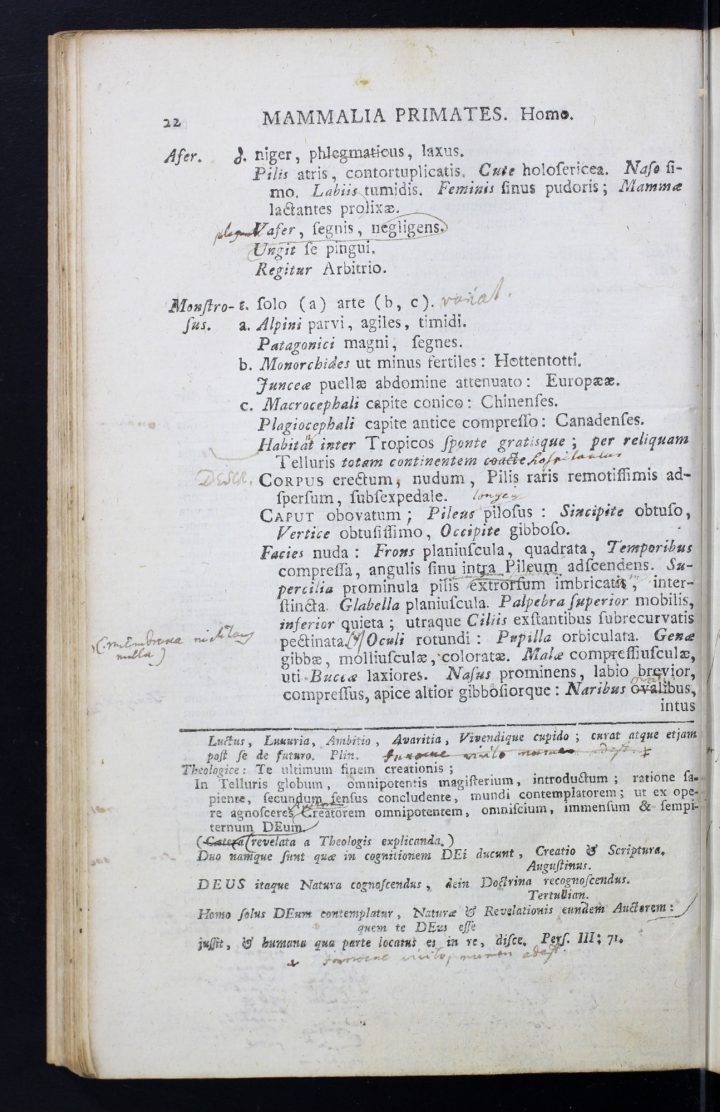 22 MAMMALIA PRIMATES. Homo.
Afer. δ. niger, phlegmaticus, laxus.
Pilis atris, contortuplicatis. Cute holosericea. Naso si-
mo. Labiis tumidis. Feminis sinus pudoris; Mammæ
lactantes prolixæ.
Vafer, segnis, negligens.
Ungit se pingui.
Regitur Arbitrio.
Monstro- ε. solo (a) arte (b, c). variat.
sus. a. Alpini parvi, agiles, timidi.
Patagonici magni, segnes.
b. Monorchides ut minus fertiles: Hottentotti.
Junceæ puellæ abdomine attenuato: Europææ.
c. Macrocephali capite conico: Chinenses.
Plagiocephali capite antice compresso: Canadenses.
Habitat inter Tropicos sponte gratisque; per reliquam
Telluris totam continentem coacte
DESCR. CORPUS erectum, nudum, Pilis raris remotissimis ad-
spersum, subsexpedale.
CAPUT obovatum; Pileus pilosus: Sincipite obtuso,
Vertice obtusissimo, Occipite gibboso.
Facies nuda: Frons planiuscula, quadrata, Temporibus
compressa, angulis sinu intra Pileum adscendens. Su-
percilia prominula pilis extrorsum imbricatis, inter-
stincta. Glabella planiuscula. Palpebra superior mobilis,
inferior quieta; utraque Ciliis exstantibus subrecurvatis
(membrana nictitans
nulla)
pectinata. Oculi rotundi: Pupilla orbiculata. Genæ
gibbæ, molliusculæ, coloratæ. Malæ compressiusculæ,
uti Buccæ laxiores. Nasus prominens, labio brevior,
compressus, apice altior gibbosiorque: Naribus ovalibus,
intus
Luctus, Luxuria, Ambitio, Avaritia, Vivendique cupido; curat atque etjam
post se de futuro. Plin.
Theologice: Te ultimum finem creationis;
In Telluris globum, omnipotentis magisterium, introductum; ratione sa-
piente, secundum sensus concludente, mundi contemplatorem; ut ex ope-
re agnosceres Creatorem omnipotentem, omniscium, immensum & sempi-
ternum DEum.
(Cætera (revelata a Theologis explicanda.)
Duo namque sunt quæ in cognitionem DEi ducunt, Creatio & Scriptura.
Augustinus.
DEUS itaque Natura cognoscendus, dein Doctrina recognoscendus.
Tertullian.
Homo solus DEum contemplatur, Naturæ & Revelationis eundem Auctorem:
quem te DEus esse
jussit, & humana qua parte locatus es in re, disce. Pers. III: 71.